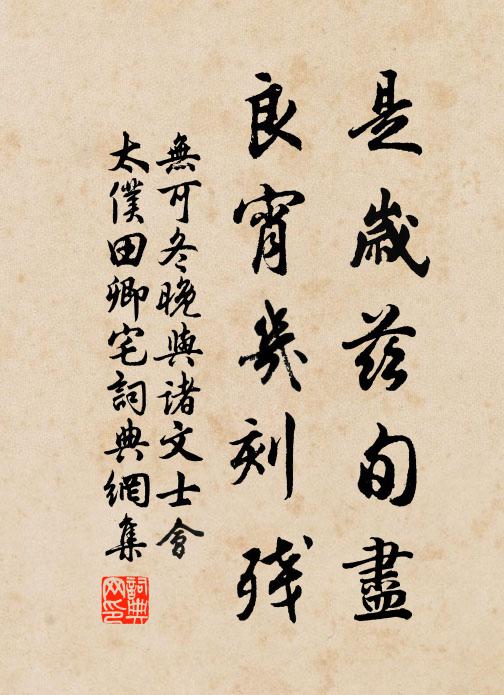 是歲茲旬盡
良宵幾刻殘
無可冬晚與諸文士會
太僕田卿宅詞典網集
詞典网印